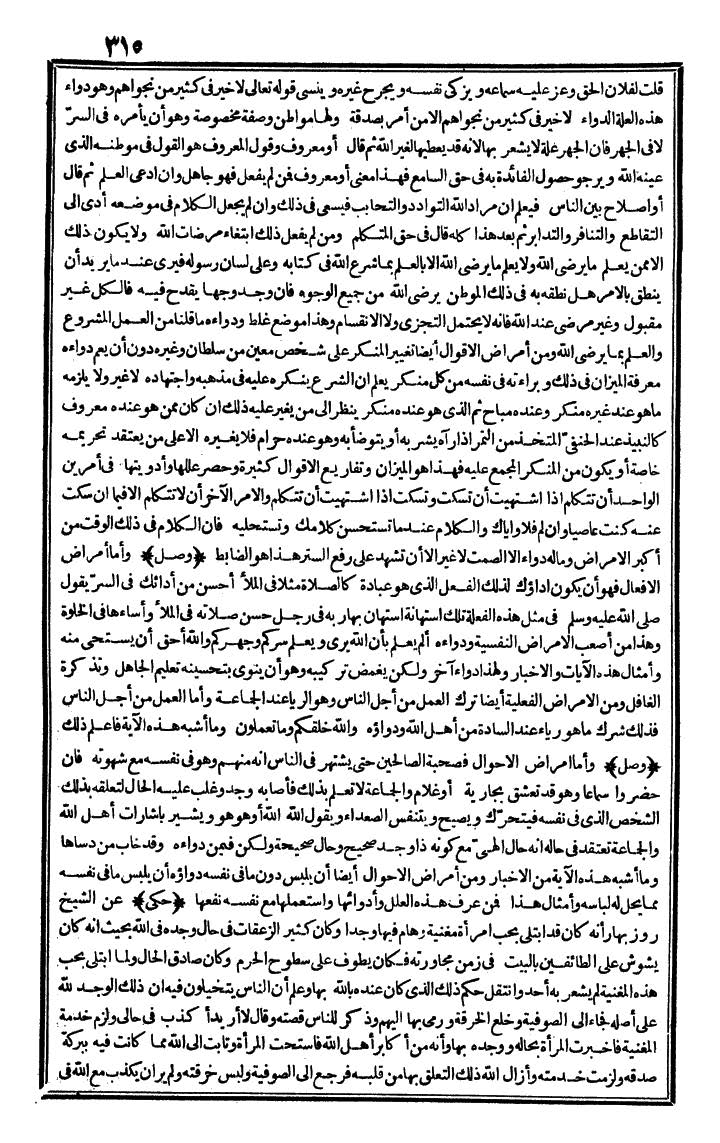 ٣١٥
قلت لفلان الحق وعز عليه سماعه ويزكى نفسه ويجرح غيره وينسى قوله تعالى لاخير فى كثير من نجواهم وهو دواء
هذه العلة الدواء لاخير فى كثير من نجواهم الامن أمر بصدقة ولها مواطن وصفة مخصوصة وهو أن يأمره فى السرّ
لا فى الجهر فان الجهر علة لا يشعر بها لانه قد يعطيها لغير الله ثم قال أو معروف وقول المعروف هو القول فى موطنه الذى
عينه الله ويرجو حصول الفائدة به فى حق السامع فهذا معنى أو معروف فن لم يفعل فهو جاهل وان ادعى العلم ثم قال
أو اصلاح بين الناس فيعلم ان مراد الله التوادد والتحابب فيسعى فى ذلك وان لم يجعل الكلام فى موضعه أدى الى
التقاطع والتنافر والتدابر ثم بعد هذا كله قال فى حق المتكلم ومن لم يفعل ذلك ابتغاء مرضات الله ولا يكون ذلك
الا ممن يعلم ما يرضى الله ولا يعلم ما يرضى الله الا بالعلم بما شرع الله فى كتابه وعلى لسان رسوله فيرى عند ما يريد أن
ينطق بالامر هل نطقه به فى ذلك الموطن يرضى الله من جميع الوجوه فان وجد وجها يقدح فيه فالكل غير
مقبول وغير مرضى عند الله فانه لا يحتمل التجزى ولا الانقسام وهذا موضع غلط ودواءه ما قلنا من العمل المشروع
والعلم بما يرضى الله ومن أمراض الاقوال أيضا تغيير المنكر على شخص معين من سلطان وغيره دون أن يعم دواءه
معرفة الميزان فى ذلك وبراءته فى نفسه من كل منكر يعلم ان الشرع ينكره عليه فى مذهبه واجتهاده لا غير ولا يلزمه
ما هو عند غيره منكر وعنده مباح ثم الذى هو عنده منكر ينظر الى من يغير عليه ذلك ان كان ممن هو عنده معروف
كالنبيذ عند الحنفىّ المتخذ من التمر اذا رآه يشربه أو يتوضأ به وهو عنده حرام فلا يغيره الا على من يعتقد تحريمه
خاصة أو يكون من المنكر المجمع عليه فهذا هو الميزان وتفاريع الاقوال كثيرة وحصر عللها وأدويتها فى أمرين
الواحد أن تتكلم اذا اشتهيت أن تسكت وتسكت اذا اشتهيت أن تتكلم والامر الآخر أن لا تتكلم الا فيما ان سكت
عنه كنت عاصيا وان لم فلا واياك والكلام عند ما تستحسن كلامك وتستحليه فان الكلام فى ذلك الوقت من
أكبر الامراض وماله دواء الا الصمت لا غير الا أن تشهد على رفع الستر هذا هو الضابط ﴿وصل﴾ وأما أمراض
الافعال فهو أن يكون اداؤك لذلك الفعل الذى هو عبادة كالصلاة مثلا فى الملأ أحسن من أدائك فى السرّ يقول
صلى الله عليه وسلم فى مثل هذه الفعلة تلك استهانة استهان بها ربه فى رجل حسن صلاته فى الملأ وأساءها فى الخلوة
وهذا من أصعب الامراض النفسية ودواءه ألم يعلم بأن الله يرى ويعلم سركم وجهركم والله أحق أن يستحى منه
وأمثال هذه الآيات والاخبار ولهذا دواء آخر ولكن يغمض تركيبه وهو أن ينوى بتحسينه تعليم الجاهل وتذكرة
الغافل ومن الامراض الفعلية أيضا ترك العمل من أجل الناس وهو الرياء عند الجماعة وأما العمل من أجل الناس
فذلك شرك ما هو رياء عند السادة من أهل الله ودواؤه والله خلقكم وما تعملون وما أشبه هذه الآية فاعلم ذلك
﴿وصل﴾ وأما امراض الاحوال فصحبة الصالحين حتى يشتهر فى الناس انه منهم وهو فى نفسه مع شهوته فان
حضروا سماعا وهو قد تعشق بجارية أو غلام والجماعة لا تعلم بذلك فأصابه وجد وغلب عليه الحال لتعلقه بذلك
الشخص الذى فى نفسه فيتحرّك ويصيح ويتنفس الصعداء ويقول الله الله أو هو هو ويشير باشارات أهل الله
والجماعة تعتقد فى حاله انه حال الهىّ مع كونه ذا وجد صحيح وحال صحيحة ولكن فمين دواءه وقد خاب من دساها
وما أشبه هذه الآية من الاخبار ومن أمراض الاحوال أيضا أن يلبس دون ما فى نفسه دواؤه أن يلبس ما فى نفسه
مما يحل له لباسه وأمثال هذا فن عرف هذه العلل وأدوائها واستعملها مع نفسه نفعها ﴿حكى﴾ عن الشيخ
روز بهار أنه كان قد ابتلى بحب امرأة مغنية وهام فيها وجدا وكان كثير الزعقات فى حال وجده فى الله بحيث انه كان
يشوش على الطائفين بالبيت فى زمن مجاورته فكان يطوف على سطوح الحرم وكان صادق الحال ولما ابتلى بحب
هذه المغنية لم يشعر به أحد وانتقل حكم ذلك الذى كان عنده بالله بها وعلم أن الناس يتخيلون فيه ان ذلك الوجد لله
على أصله فجاء الى الصوفية وخلع الخرقة ورمى بها اليهم وذكر للناس قصته وقال لا أريد أ كذب فى حالى ولزم خدمة
المغنية فاخبرت المرأة بحاله ووجده بها وأنه من أكابر أهل الله فاستحت المرأة وتابت الى الله مما كانت فيه ببركة
صدقه ولزمت خدمته وأزال الله ذلك التعلق بها من قلبه فرجع الى الصوفية ولبس خرقته ولم ير ان يكذب مع الله فى